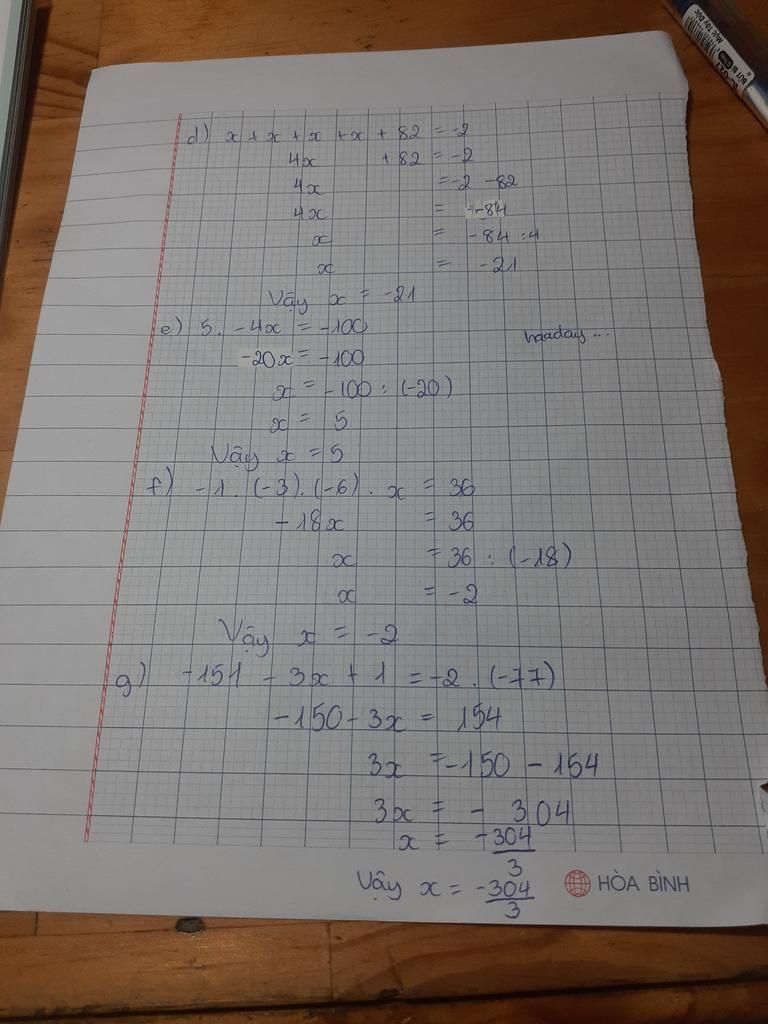 d) x + x + x + x + 82 = -2
4x + 82 = -2
4x = -2 -82
4x = -84
x = -84 :4
x = -21
Vậy x = -21
e) 5. -4x = -100
-20x = -100
x = -100 : (-20)
x = 5
Vậy x = 5
f) -1. (-3). (-6). x = 36
-18x = 36
x = 36 : (-18)
x = -2
Vậy x = -2
g) -151 - 3x + 1 = -2. (-77)
-150 - 3x = 154
3x = -150 - 154
3x = - 304
x = -304/3
Vậy x = -304/3
HÒA BÌNH
BÚT BI